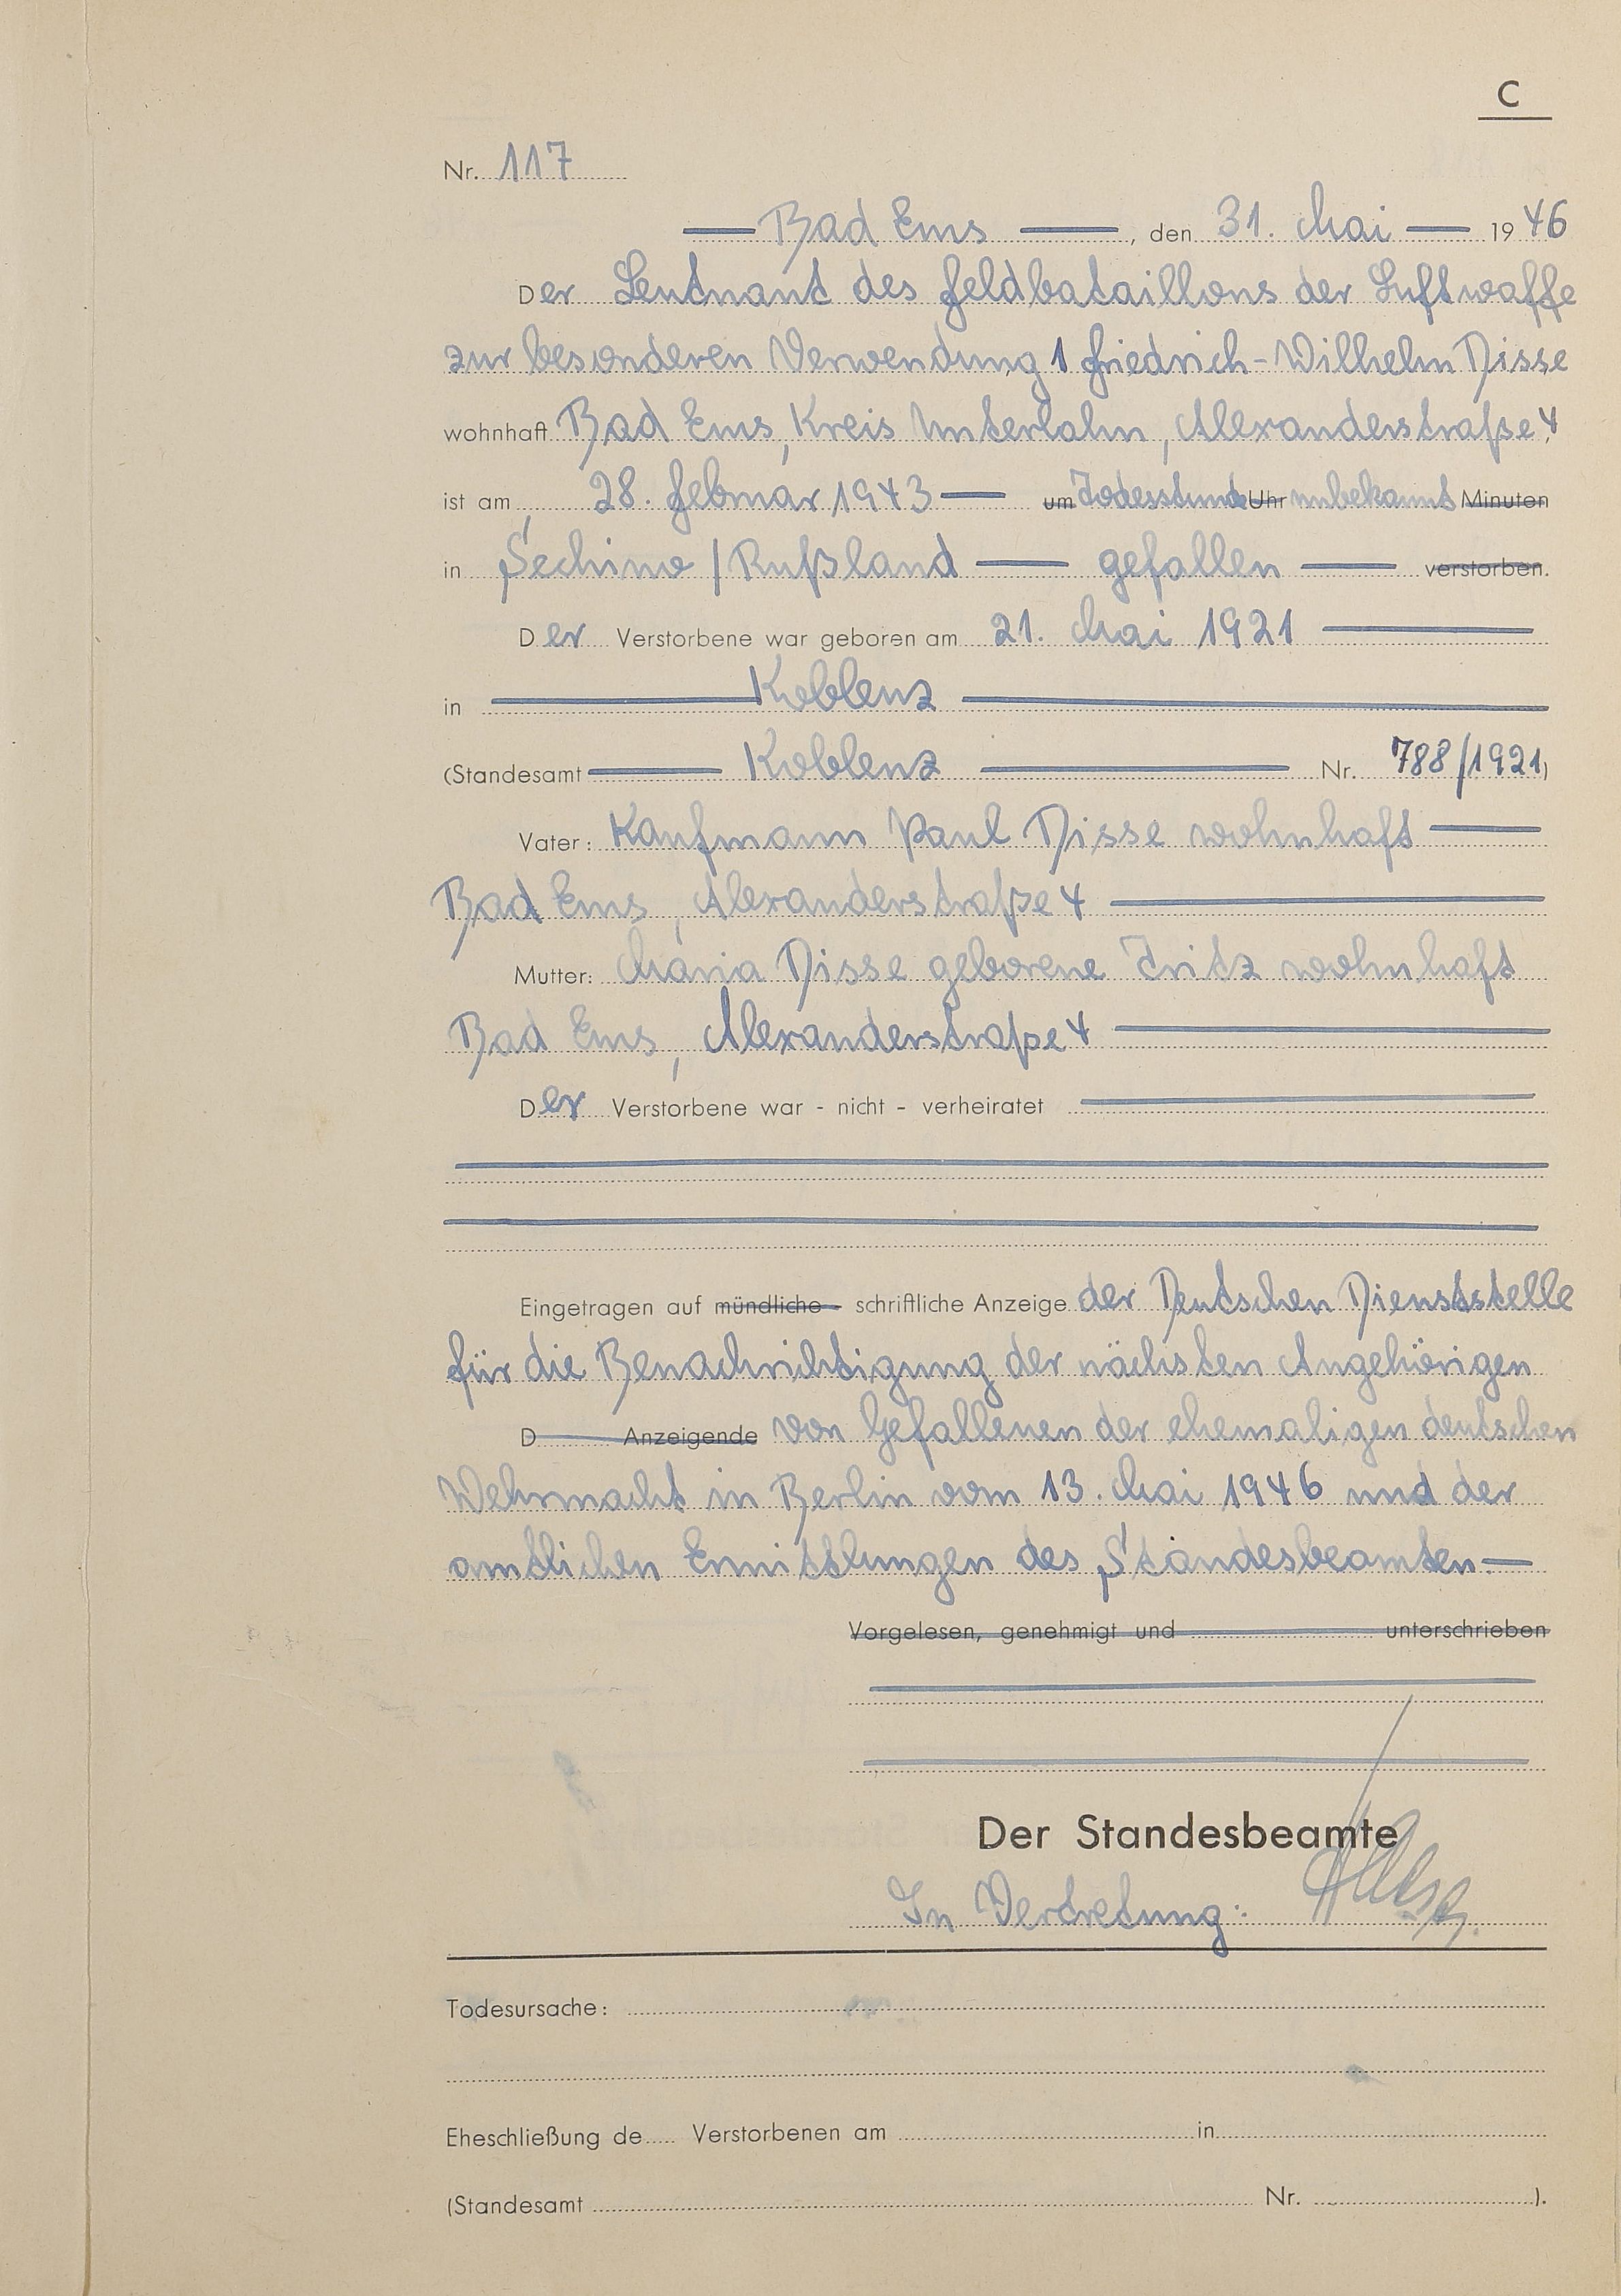 C
Nr. 117
Bad Ems, den 31. Mai 1946
Der Leutnant des Feldbataillons der Luftwaffe
zur besonderen Verwendung 1 Friedrich-Wilhelm Disse
wohnhaft Bad Ems, Kreis Unterlahn, Alexanderstraße 4,
ist am 28. Februar 1943 um Todesstunde Uhr unbekannt Minuten
in Sechino / Rußland gefallen verstorben.
Der Verstorbene war geboren am 21. Mai 1921
in Koblenz
(Standesamt Koblenz Nr. 788/1921)
Vater: Kaufmann Paul Disse wohnhaft
Bad Ems, Alexanderstraße 4
Mutter: Maria Disse geborene Tritz wohnhaft
Bad Ems, Alexanderstraße 4
Der Verstorbene war - nicht - verheiratet
Eingetragen auf mündliche - schriftliche Anzeige der Deutschen Dienststelle
für die Benachrichtigung der nächsten Angehörigen
D Anzeigende von Gefallenen der ehemaligen deutschen
Wehrmacht in Berlin vom 13. Mai 1946 und der
amtlichen Ermittlungen des Standesbeamten.
Vorgelesen, genehmigt und unterschrieben
Der Standesbeamte
In Vertretung:
Todesursache:
Eheschließung de Verstorbenen am in
(Standesamt Nr. ).